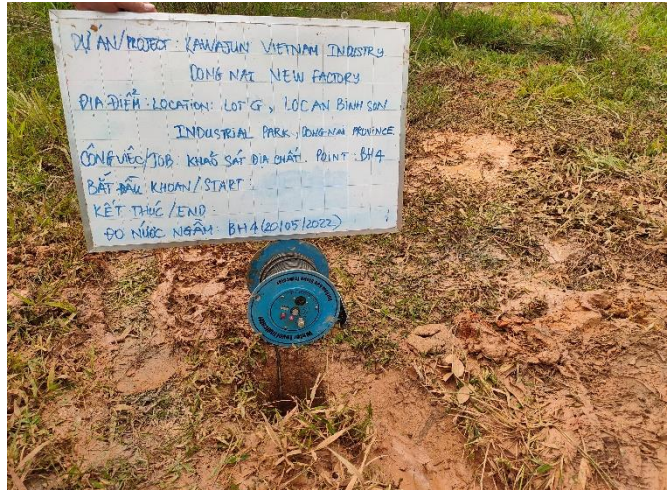 DỰ ÁN/PROJECT : KAWAJUN VIETNAM INDUSTRY
DONG NAI NEW FACTORY
ĐỊA ĐIỂM : LOCATION: LOT G, LOC AN BINH SON
INDUSTRIAL PARK, DONG NAI PROVINCE
CÔNG VIỆC/JOB: KHẢO SÁT ĐỊA CHẤT. POINT: BH4
BẮT ĐẦU KHOAN/START :
KẾT THÚC/END :
ĐO NƯỚC NGẦM : BH4 (20/05/2022)